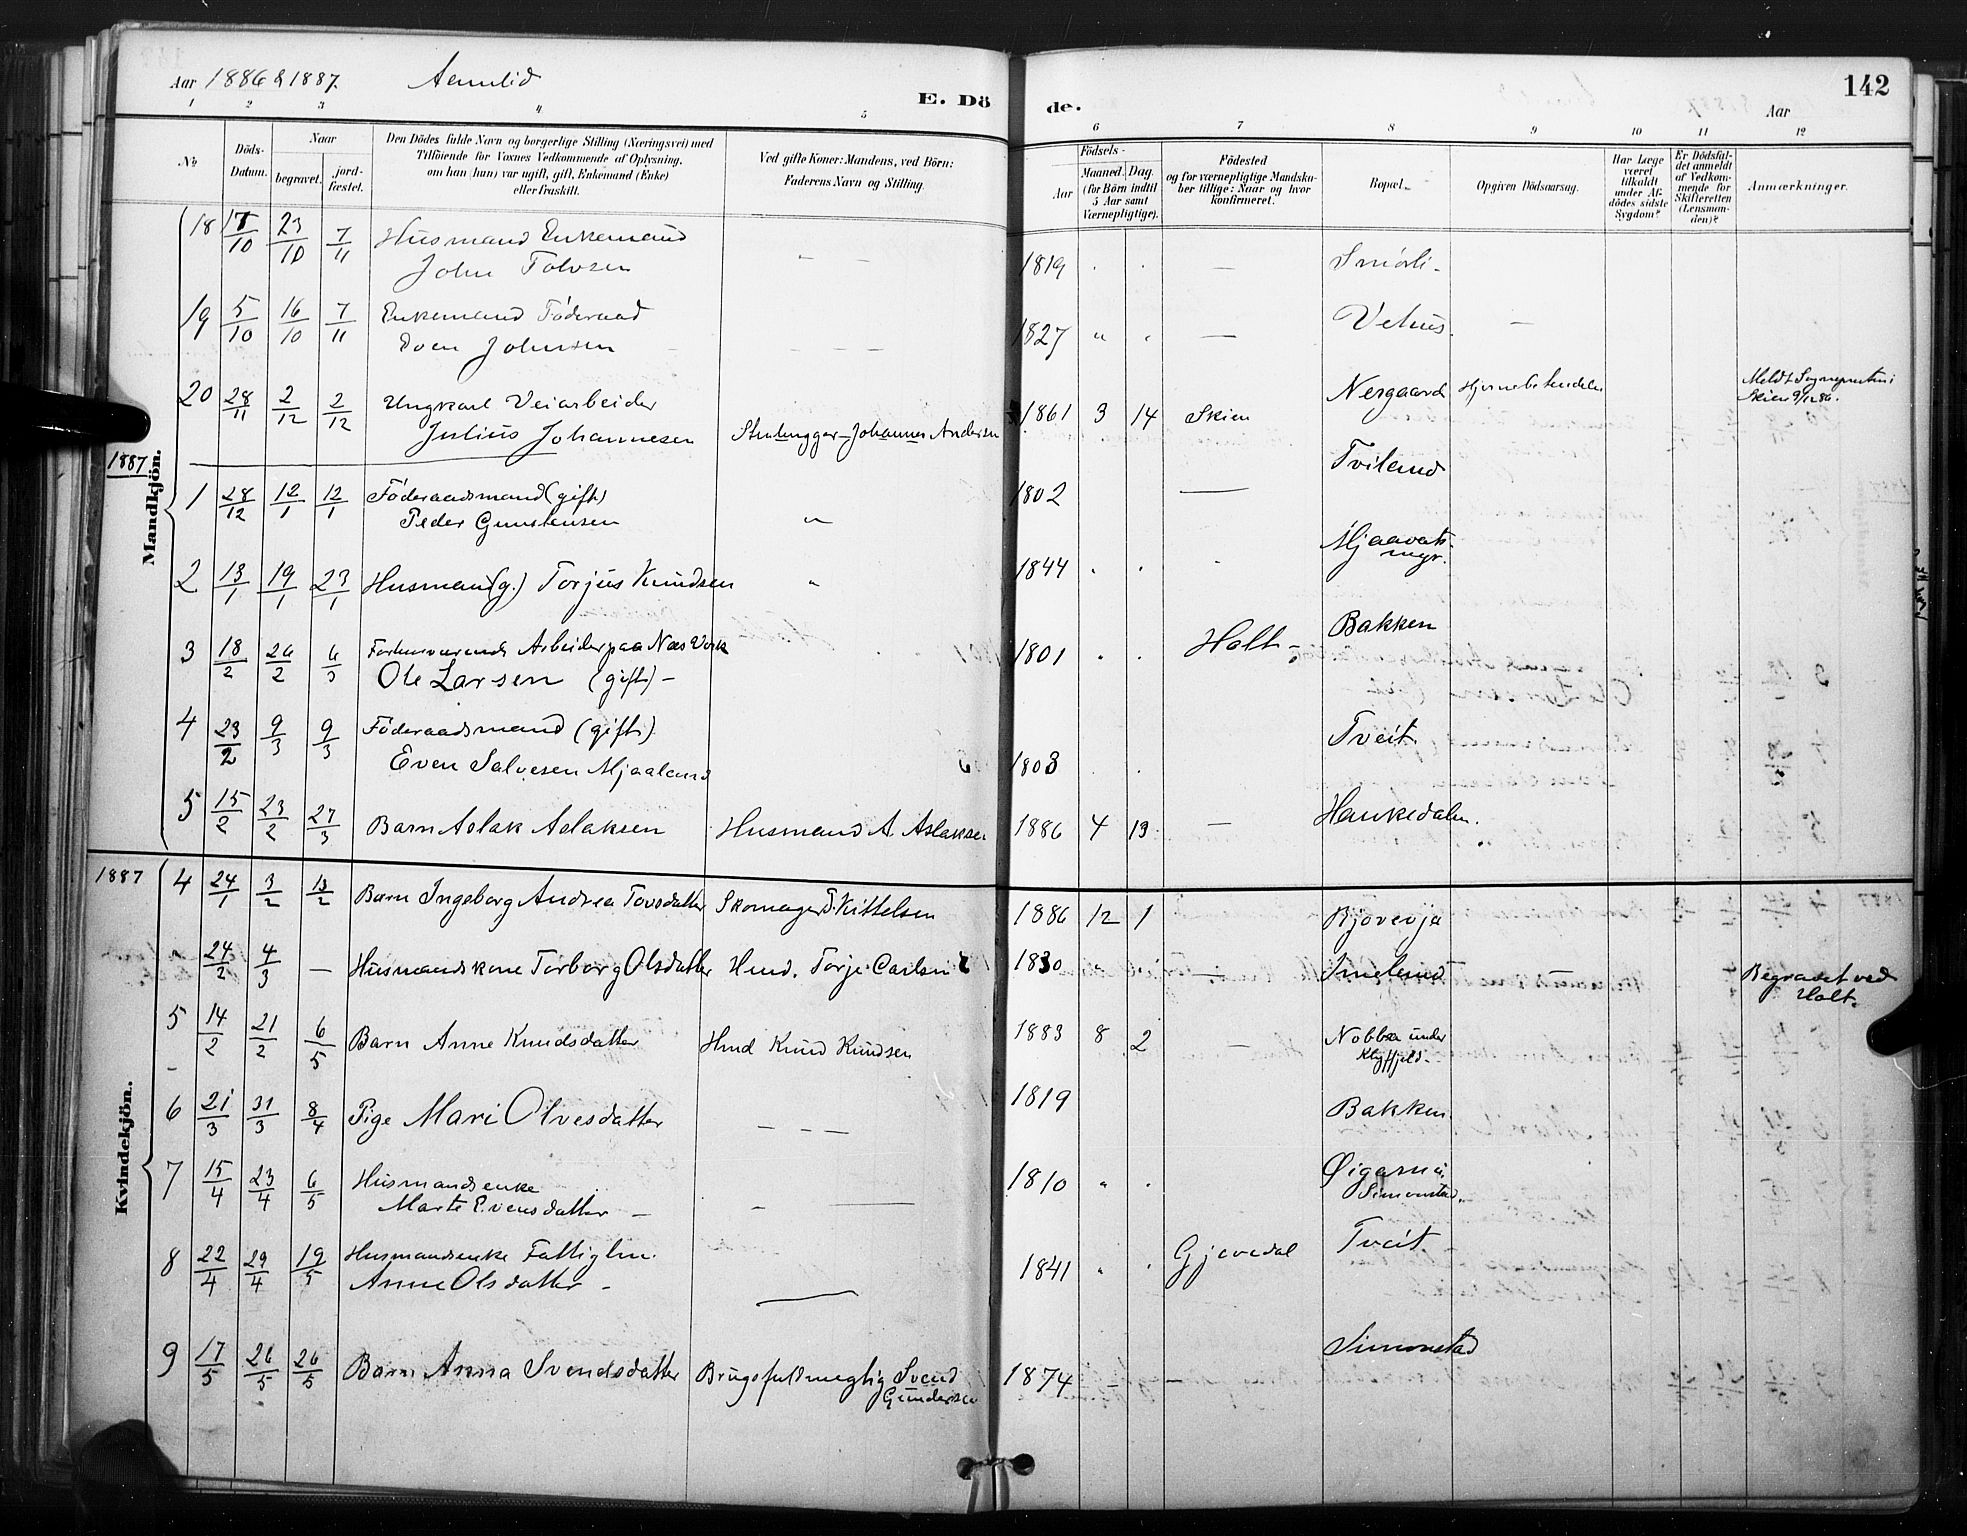 Aar 1886 & 1887.
E. Dö de.
142
Aar
1 2 3 4 5 6 7 8 9 10 11 12
No
Döds-Datum.
Naar
begravet.
jord-fæstet.
Den Dödes fulde Navn og borgerlige Stilling (Næringsvei) med
Tilföiende for Voxnes Vedkommende af Oplysning,
om han (hun) var ugift, gift, Enkemand (Enke)
eller fraskilt.
Ved gifte Koner: Mandens, ved Börn:
Faderens Navn og Stilling.
Födsels-
Aar
Maaned. Dag.
(for Börn indtil
5 Aar samt
Værnepligtige).
Födested
og for værnepligtige Mandsku-
ber tillige: Naar og hvor
konfirmeret.
Bopæl.
Opgiven Dödsaarsag.
Har Læge
været
tilkaldt
under Af-
dödes sidste
Sygdom?
Er Dödsfal-
det anmeldt
af Vedkom-
mende for
Skifteretten
(Lensman-
den)?
Anmærkninger.
Mandkjön.
18 23/10 7/11 Husmand Enkemand
John Tolvsen 1819 — Smörli.
19 5/10 16/10 7/11 Enkemand Föderaad
Even Johnsen — 1827 — Vehus. —
20 28/11 2/12 2/12 Ungkarl Veiarbeider
Julius Johannesen Johannes Andersen 1861 3 14 Skien Nergaard Meldt Sogneprsten i
Skien 9/12 86.
1887
1 28/12 12/1 12/1 Föderaadsmand (gift)
Peder Gunstensen 1802 — Tviland
2 13/1 19/1 23/1 Husmand (g.) Torjus Knudsen 1844
3 18/2 26/2 6/3 Forhenværende Arbeider paa Næs Værk
Ole Larsen (gift) — 1801 Holt — Bakken
4 23/2 9/3 9/3 Föderaadsmand (gift)
Even Salvesen Mjaaland 1803 Tveit
5 15/2 23/2 27/3 Barn Aslak Aslaksen Husmand A. Aslaksen 1886 4 13 — Haukedalen.
1887
Kvindekjön.
4 24/1 3/2 13/2 Barn Ingeborg Andrea Tovsdatter Skomager T. Kittelsen 1886 12 1
24/2 4/3 — Husmandskone Torborg Olsdatter Hmd. Torje Carlsen 1830 — Imelund — Begravet ved
Holt.
5 14/2 21/2 6/5 Barn Anne Knudsdatter Hmd Knud Knudsen 1883 8 2 — under
6 21/3 31/3 8/4 Pige Mari Olvesdatter — — — 1819 Bakken
7 15/4 23/4 6/5 Husmandsenke
Marte Evensdatter — — 1810
Simonstad.
8 22/4 29/4 19/5 Husmandsenke Fattiglm.
Anne Olsdatter — — 1841 Gjevedal Tveit.
9 17/5 26/5 26/5 Barn Anna Svendsdatter Brugsfuldmegtig Svend
Gundersen 1874 — — Simonstad